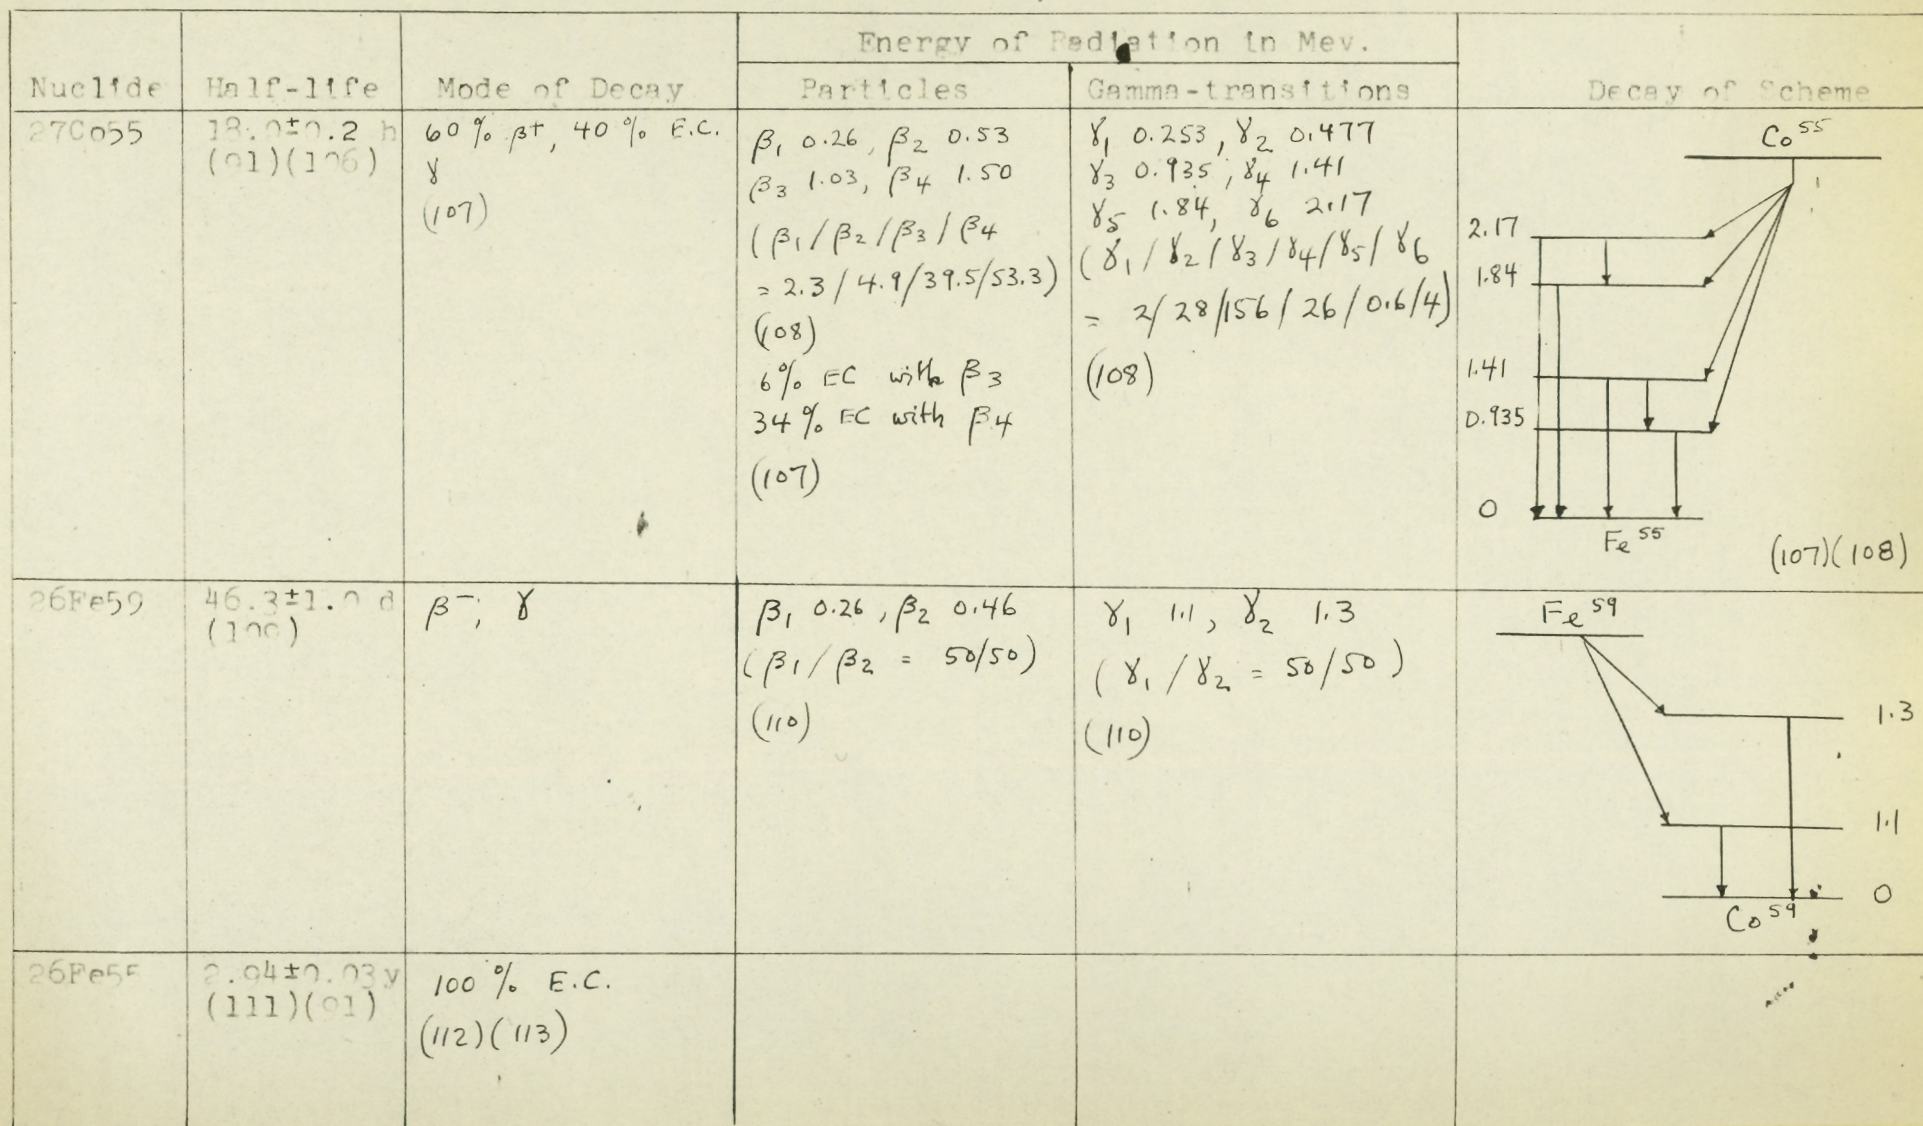 Energy of Radiation in Mev.
Nuclide Half-life Mode of Decay Particles Gamma-transitions Decay of Scheme
27Co55
18.0±0.2 h
(91)(106)
60% β+, 40% E.C.
γ
(107)
β1 0.26, β2 0.53
β3 1.03, β4 1.50
(β1/β2/β3/β4
= 2.3/4.9/39.5/53.3)
(108)
6% EC with β3
34% EC with β4
(107)
γ1 0.253, γ2 0.477
γ3 0.935, γ4 1.41
γ5 1.84, γ6 2.17
(γ1/γ2/γ3/γ4/γ5/γ6
= 2/28/156/26/0.6/4)
(108)
Co55
2.17
1.84
1.41
0.935
0
Fe55
(107)(108)
26Fe59
46.3±1.0 d
β-; γ
β1 0.26, β2 0.46
(β1/β2 = 50/50)
(110)
γ1 1.1, γ2 1.3
(γ1/γ2 = 50/50)
(110)
Fe59
1.3
1.1
0
Co59
26Fe55
2.94±0.03y
(111)(91)
100% E.C.
(112)(113)